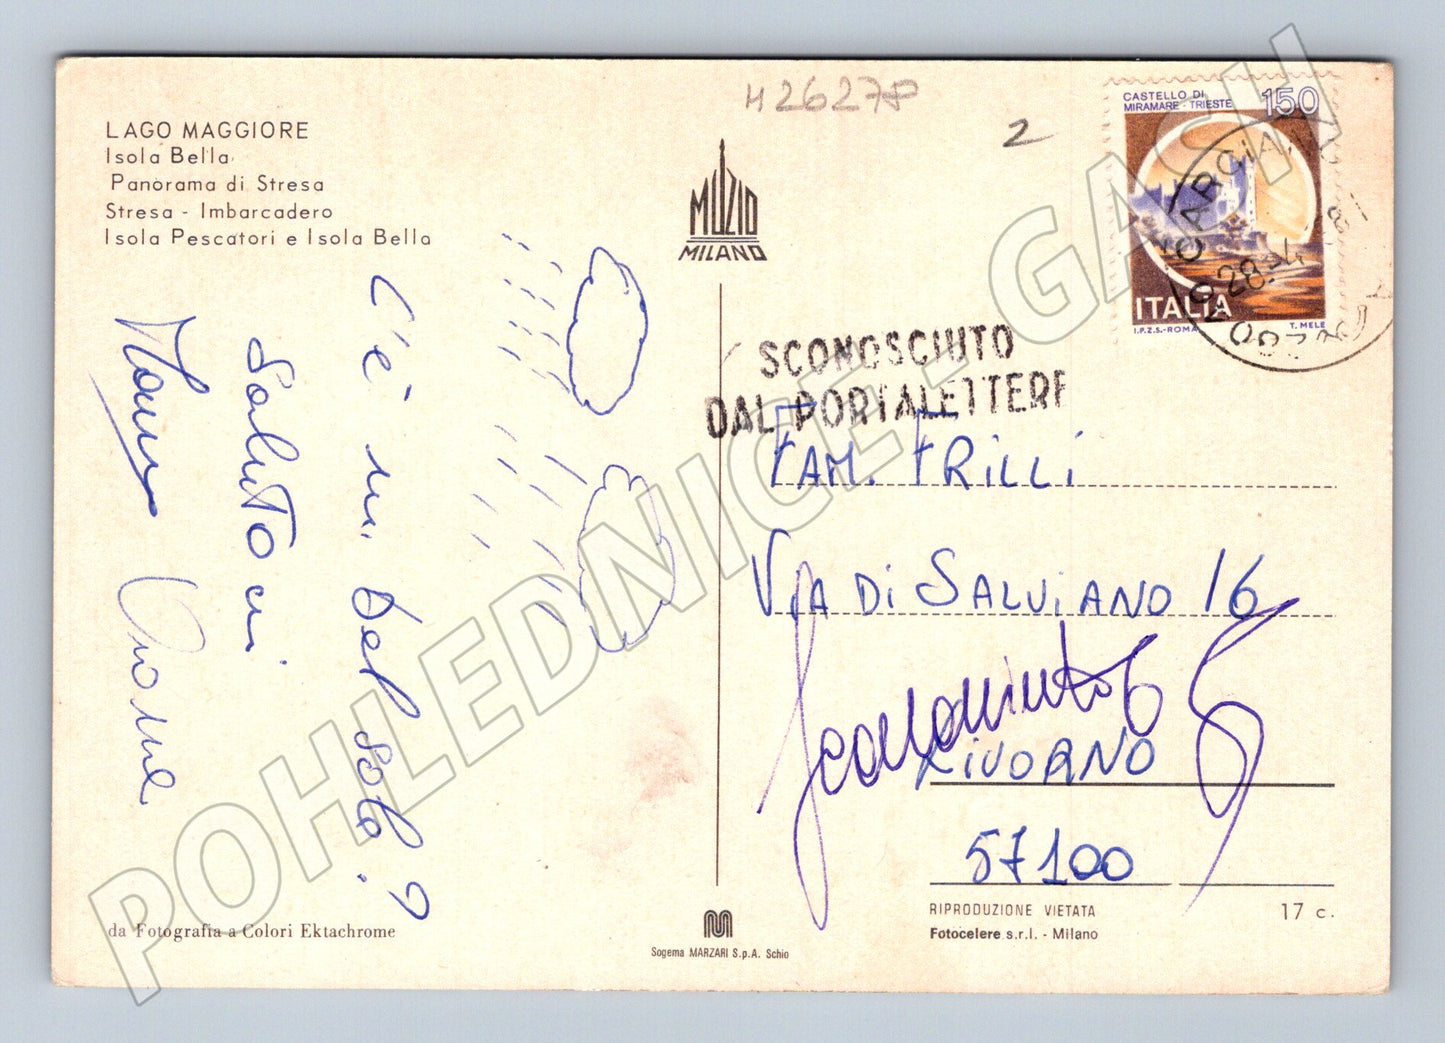 H26277P
2
LAGO MAGGIORE
Isola Bella
Panorama di Stresa
Stresa - Imbarcadero
Isola Pescatori e Isola Bella
MUZIO
MILANO
CASTELLO DI
MIRAMARE - TRIESTE
150
ITALIA
I.P.Z.S.-ROMA
T. MELE
SCONOSCIUTO
DAL PORTALETTERE
FAM. FRILLI
VIA DI SALVIANO 16
LIVORNO
57100
C'è un bel sole?
Saluto ai
da Fotografia a Colori Ektachrome
Sogema MARZARI S.p.A. Schio
RIPRODUZIONE VIETATA
Fotocelere s.r.l. - Milano
17 c.
POHLEDNICE - GASH